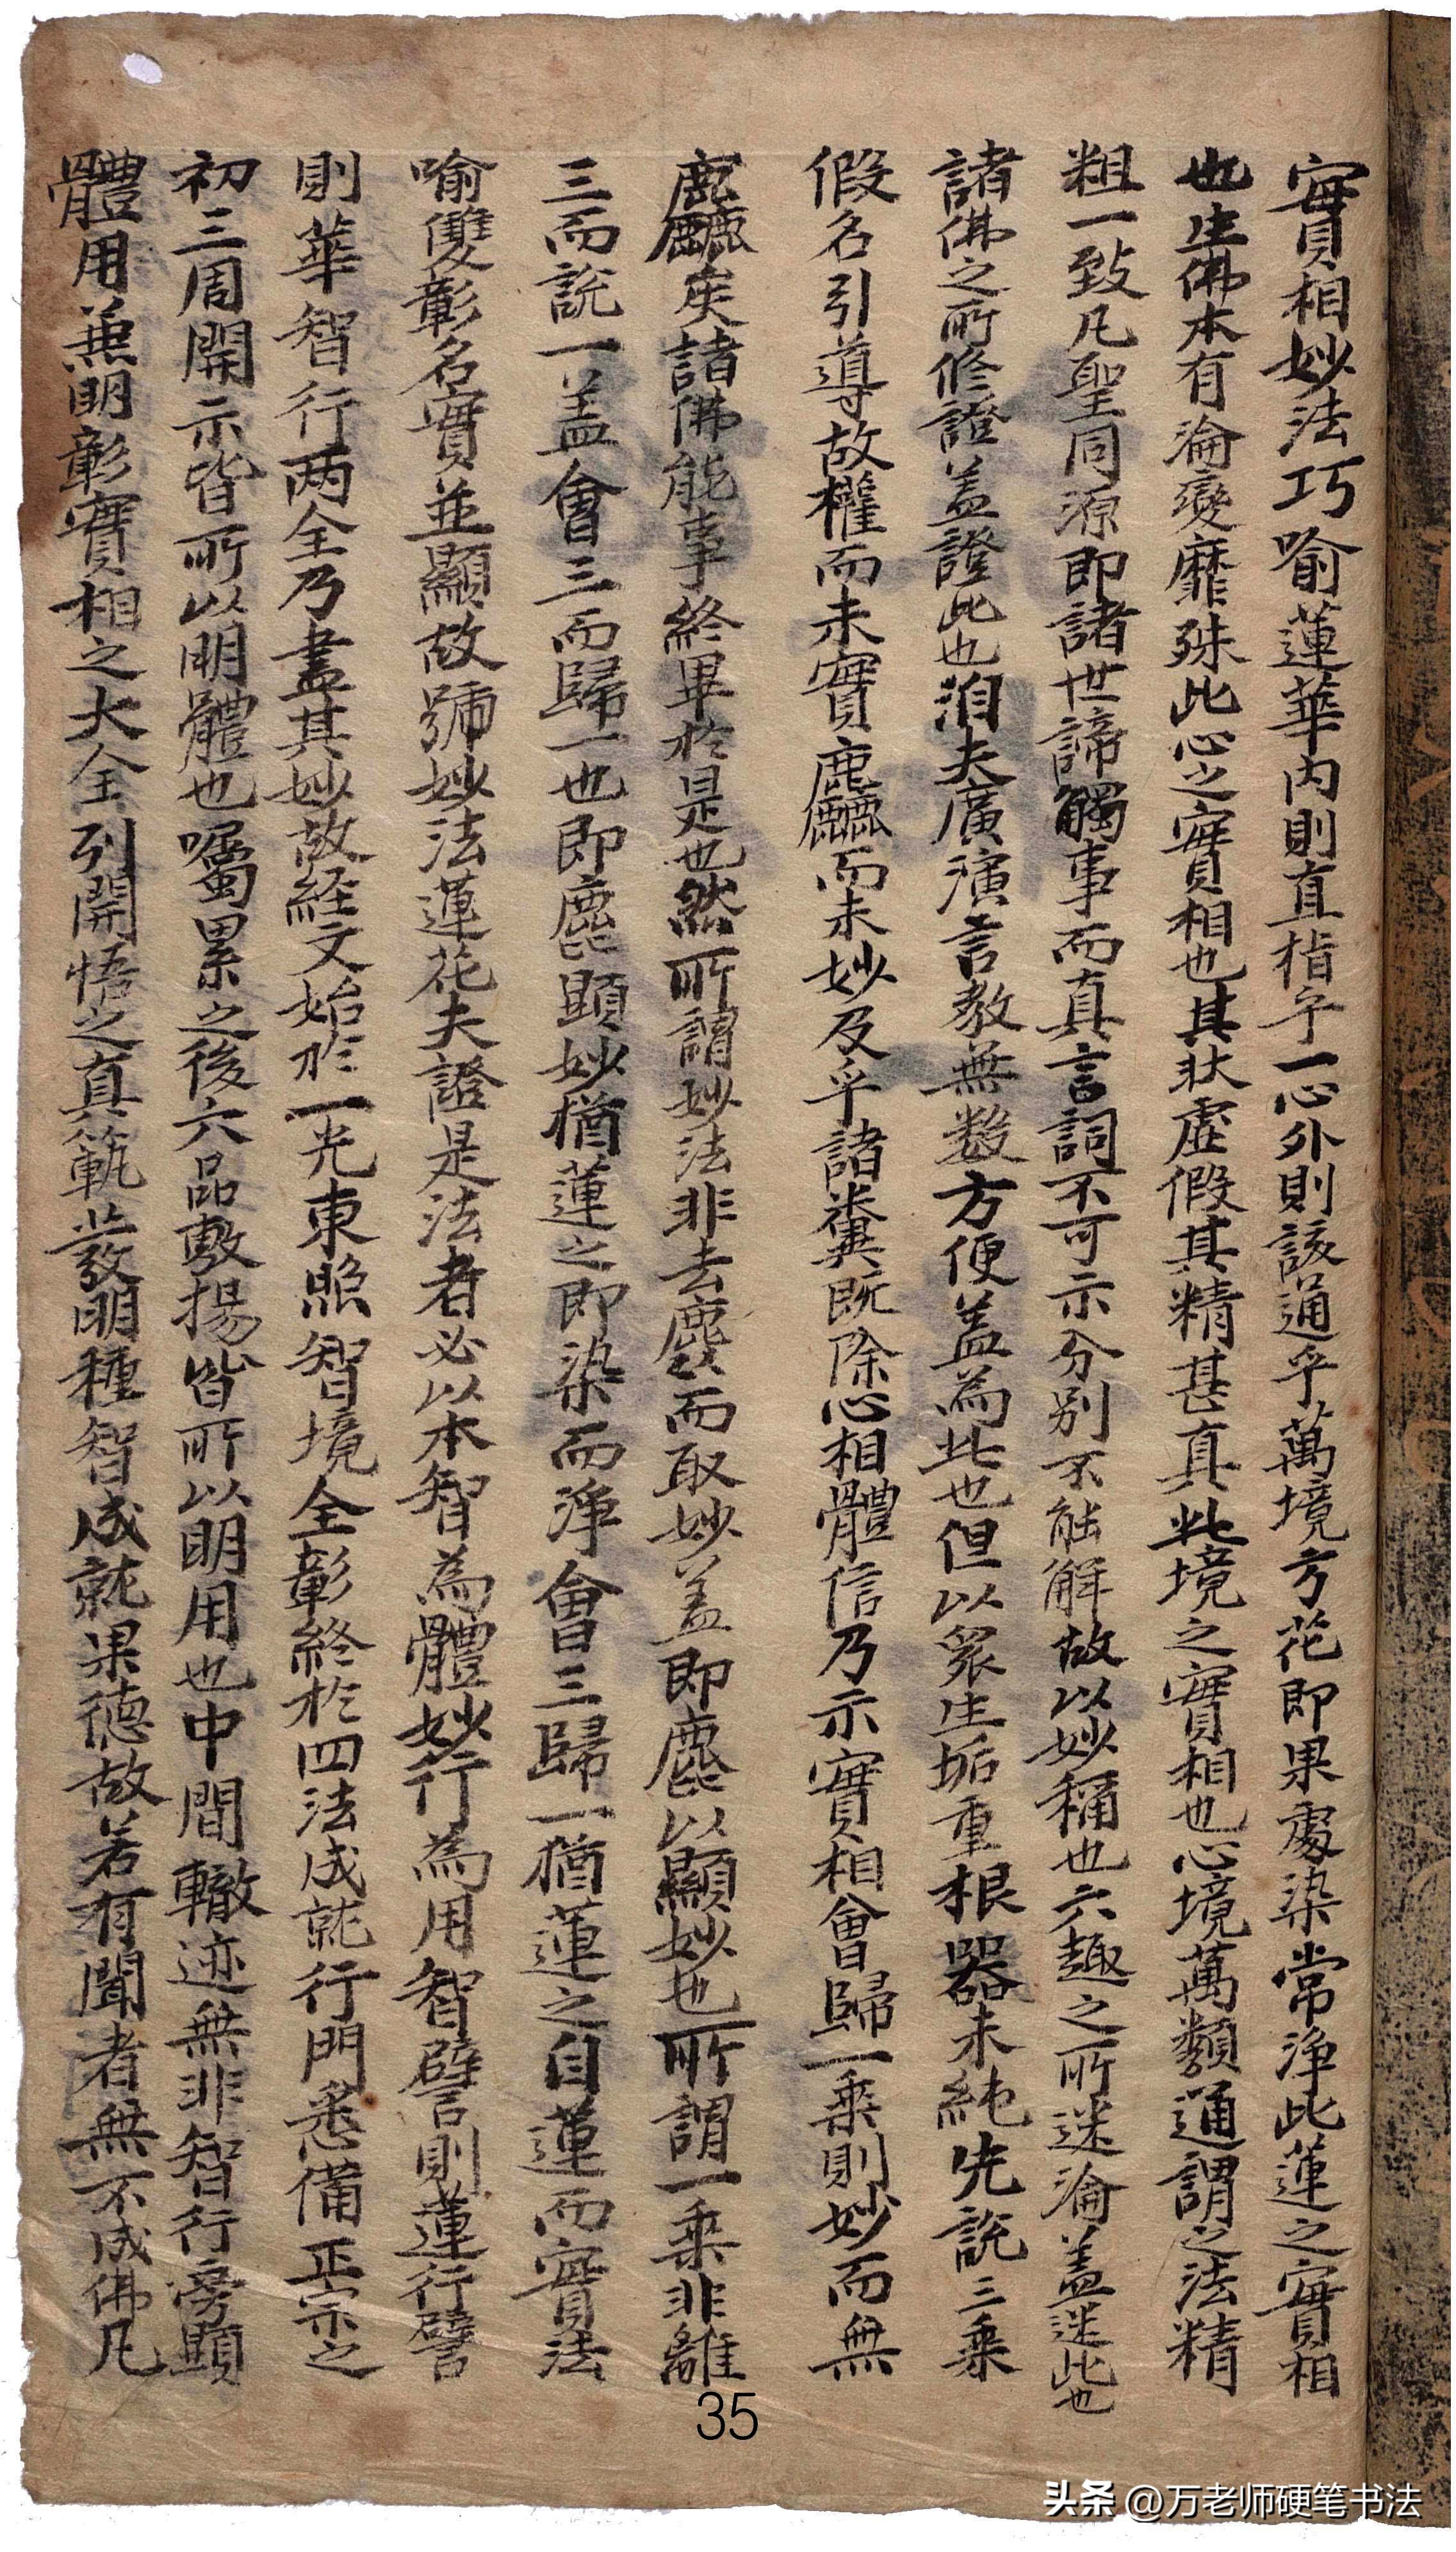 實相妙法巧喻蓮華內則直指乎一心外則該通乎萬境方花即果處染常淨此蓮之實相
也生佛本有淪變靡殊此心之實相也其狀虛假其精甚真此境之實相也心境萬類通謂之法精
粗一致凡聖同源即諸世諦觸事而真言詞不可示分别不能解故以妙稱也六趣之所迷淪盖迷此也
諸佛之所修證盖證此也洎夫廣演言教無数方便盖為此也但以衆生垢重根器未純先説三乘
假名引導故權而未實麁麤而未妙及乎諸糞既除心相體信乃示實相會歸一乘則妙而無
麁麤矣諸佛能事終畢於是也然所謂妙法非去麁而取妙盖即麁以顯妙也所謂一乘非離
三而説一盖會三而歸一也即麁顕妙猶蓮之即染而淨會三歸一猶蓮之自蓮而實法
喻雙彰名實並顯故號妙法蓮花夫證是法者必以本智為體妙行為用智譬則蓮行譬
則華智行两全乃盡其妙故経文始於一光東照智境全彰終於四法成就行門悉備正宗之
初三周開示皆所以明體也囑累之後六品敷揚皆所以明用也中間轍迹無非智行旁顕
體用兼明彰實相之大全列開悟之真範發明種智成就果德故若有聞者無不成佛凡
35
头条 @万老师硬笔书法